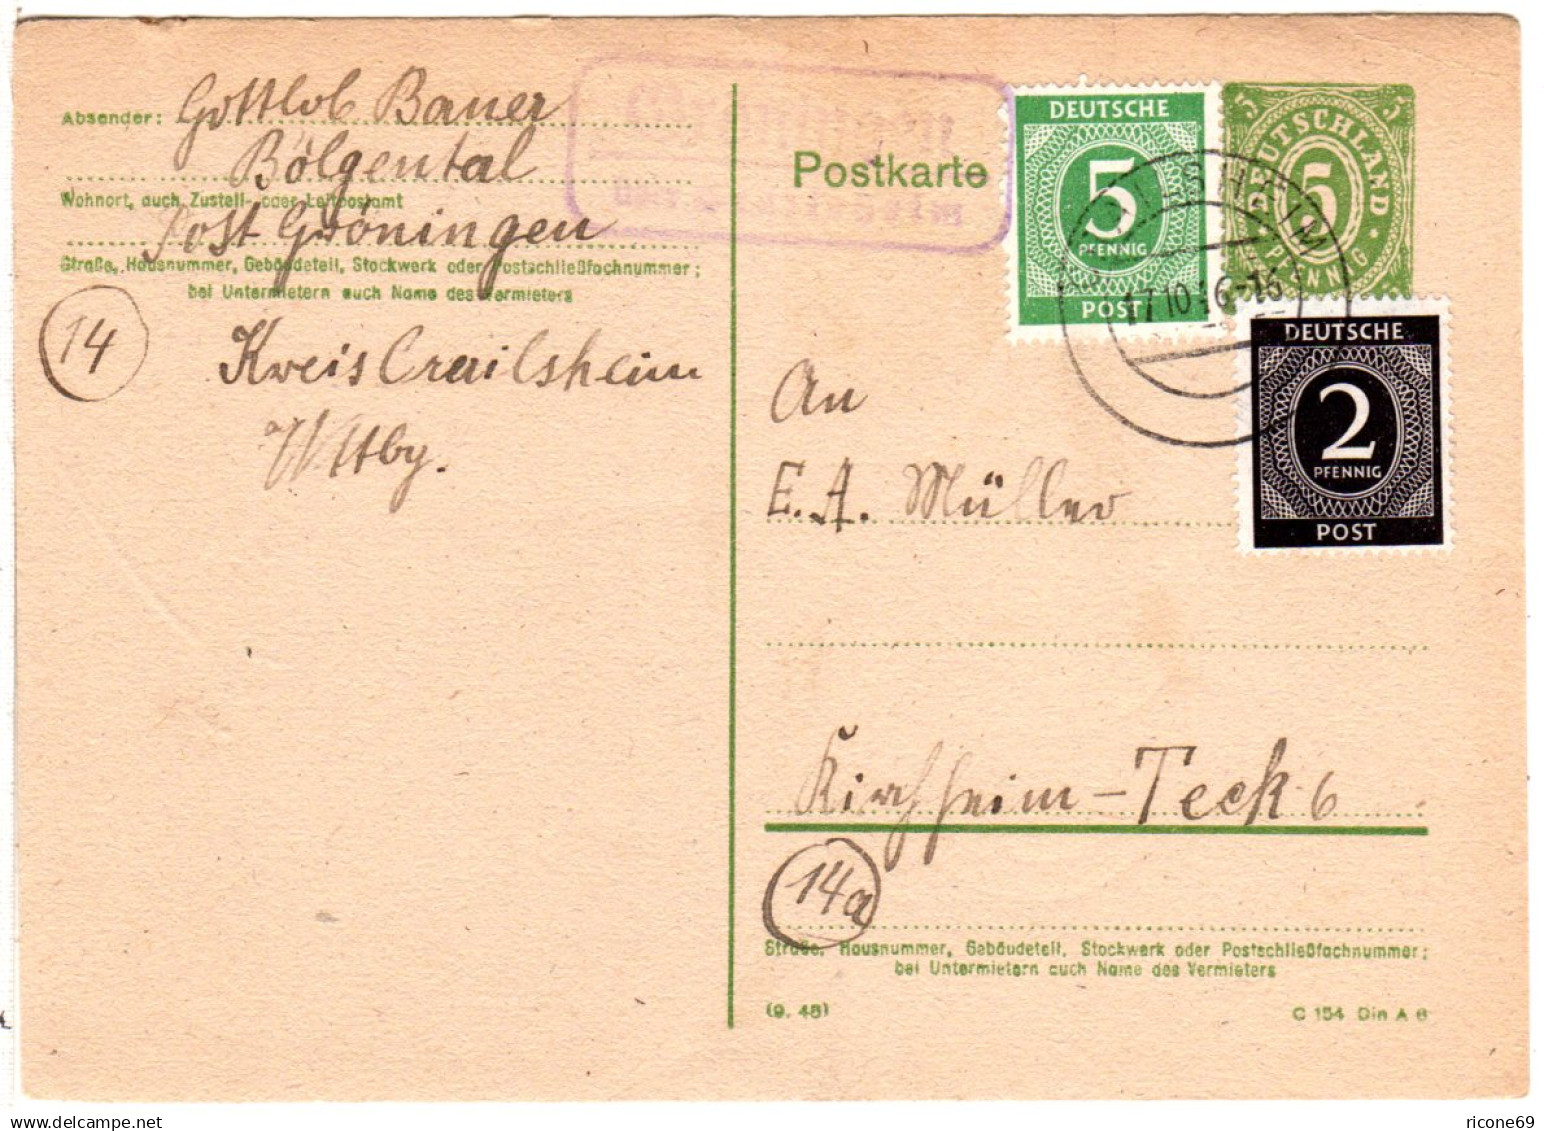 Absender: Gottlob Bauer
Bölgental
Wohnort, auch Zustell- oder Leitpostamt
Post Gröningen
Straße, Hausnummer, Gebäudeteil, Stockwerk oder Postschließfachnummer;
bei Untermietern auch Name des Vermieters
14
Kreis Crailsheim
Wttbg.
Postkarte
DEUTSCHE
5
PFENNIG
POST
5 DEUTSCHLAND 5
5
PFENNIG
17 10 46-16
DEUTSCHE
2
PFENNIG
POST
An
E. A. Müller
Kirchheim-Teck 6
14a
Straße, Hausnummer, Gebäudeteil, Stockwerk oder Postschließfachnummer;
bei Untermietern auch Name des Vermieters
(9. 45)
C 154 Din A 6
delcampe.net
ricone69